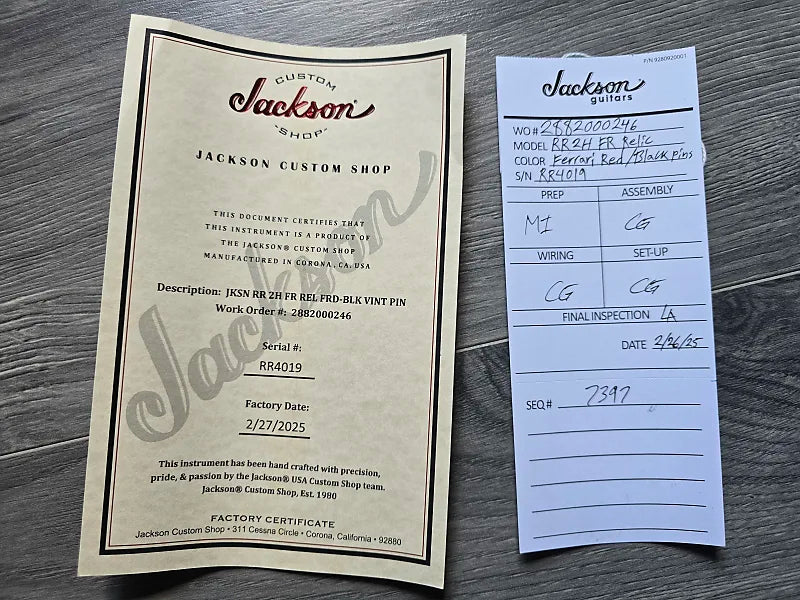 CUSTOM
Jackson®
SHOP
JACKSON CUSTOM SHOP
THIS DOCUMENT CERTIFIES THAT
THIS INSTRUMENT IS A PRODUCT OF
THE JACKSON® CUSTOM SHOP
MANUFACTURED IN CORONA, CA. USA
Jackson
Description: JKSN RR 2H FR REL FRD-BLK VINT PIN
Work Order #: 2882000246
Serial #:
RR4019
Factory Date:
2/27/2025
This instrument has been hand crafted with precision,
pride, & passion by the Jackson® USA Custom Shop team.
Jackson® Custom Shop, Est. 1980
FACTORY CERTIFICATE
Jackson Custom Shop • 311 Cessna Circle • Corona, California • 92880
P/N 9280920001
Jackson
guitars
WO# 2882000246
MODEL RR2H FR Relic
COLOR Ferrari Red/Black Pins
S/N RR4019
PREP ASSEMBLY
MI CG
WIRING SET-UP
CG CG
FINAL INSPECTION LA
DATE 2/26/25
SEQ# 7397